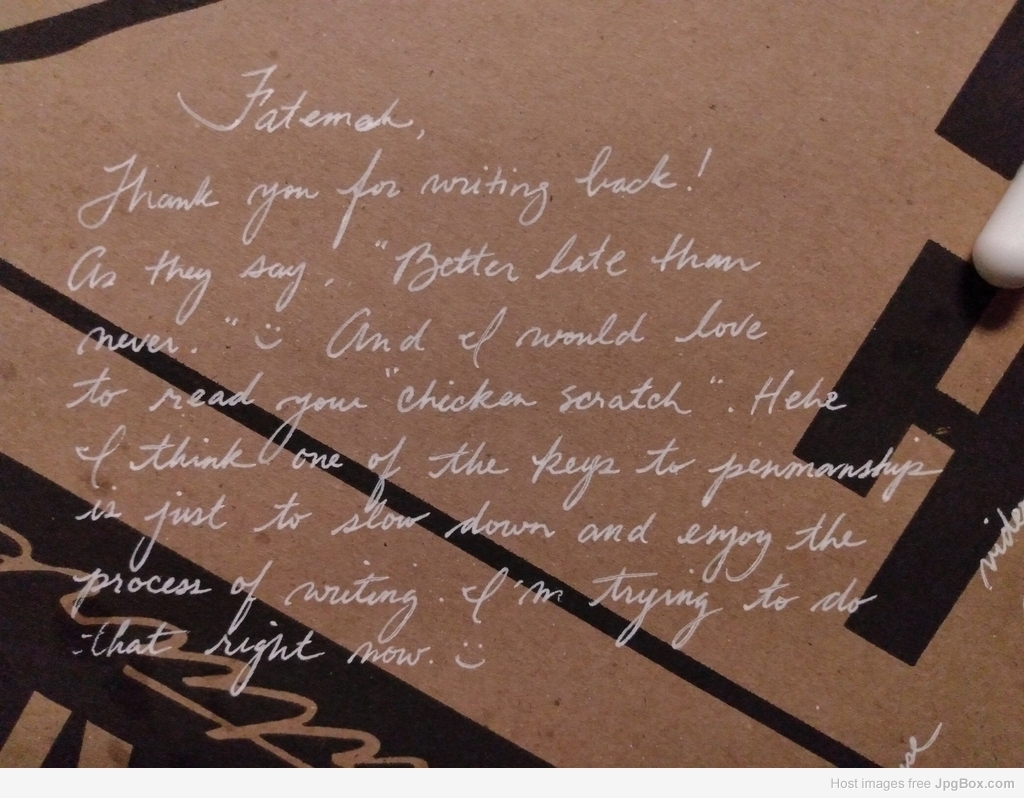 Fatemah,
Thank you for writing back!
As they say, "Better late than
never." :) And I would love
to read your "chicken scratch". Hehe
I think one of the keys to penmanship
is just to slow down and enjoy the
process of writing. I'm trying to do
that right now. :)
Host images free JpgBox.com